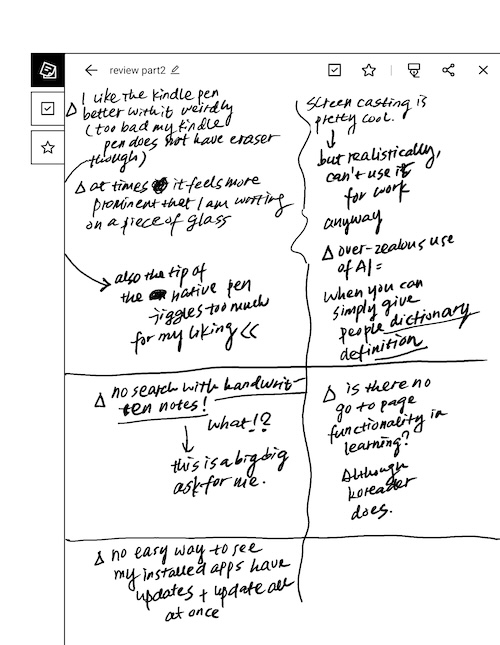 review part2
Δ I like the kindle pen
better with it weirdly
(too bad my kindle
pen does not have eraser
though)
Δ at times it feels more
prominent that I am writing
on a piece of glass
also the tip of
the native pen
jiggles too much
for my liking <<
screen casting is
pretty cool.
but realistically,
can't use it
for work
anyway
Δ over-zealous use
of AI =
when you can
simply give
people dictionary
definition
Δ no search with handwrit-
ten notes!
what!?
this is a big big
ask for me.
Δ is there no
go to page
functionality in
learning?
Although
koreader
does.
Δ no easy way to see
my installed apps have
updates + update all
at once